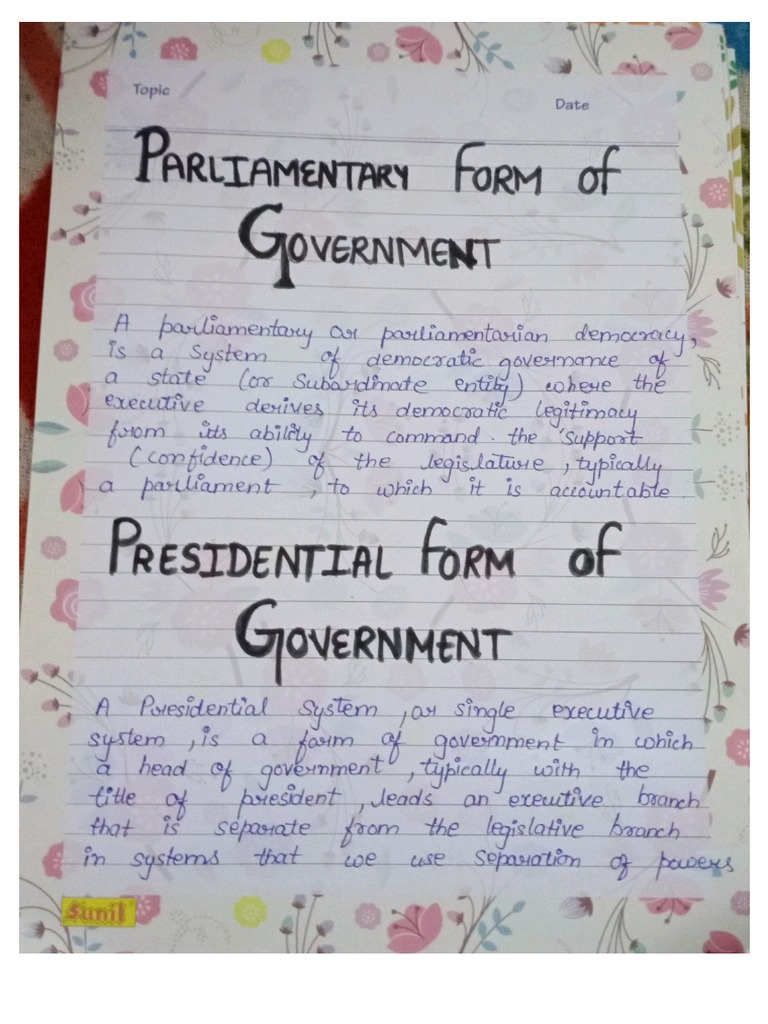 Topic
Date
PARLIAMENTARY FORM OF
GOVERNMENT
A parliamentary or parliamentarian democracy,
is a system of democratic governance of
a state (or subordinate entity) where the
executive derives its democratic legitimacy
from its ability to command the support
(confidence) of the legislature, typically
a parliament, to which it is accountable
PRESIDENTIAL FORM OF
GOVERNMENT
A Presidential System, or single executive
system, is a form of government in which
a head of government, typically with the
title of president, leads an executive branch
that is separate from the legislative branch
in systems that we use separation of powers
Sunil